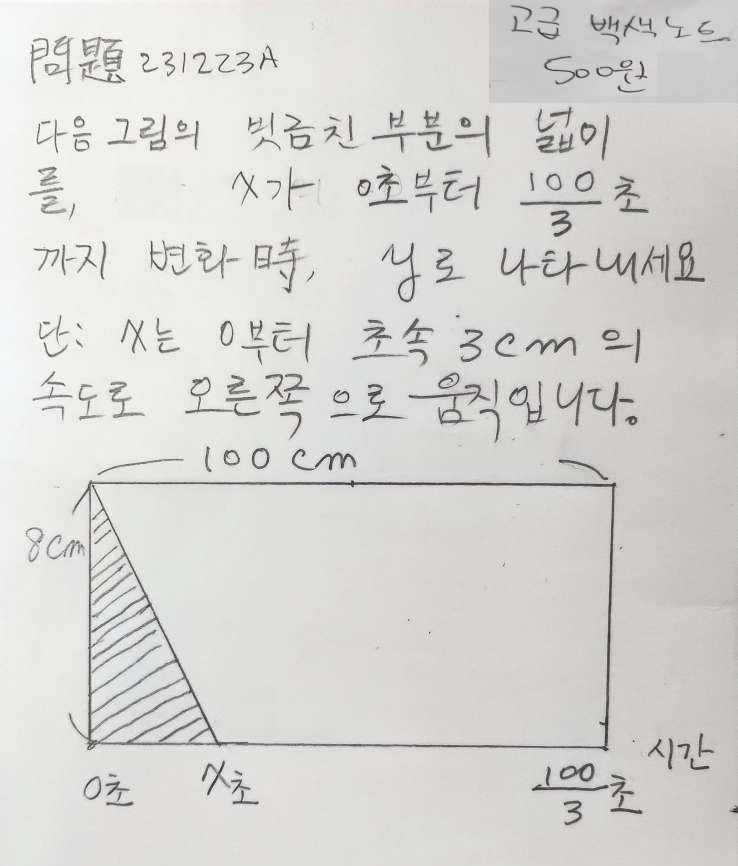 고급 백색노트
500원
問題 231223A
다음 그림의 빗금친 부분의 넓이
를, x가 0초부터 100/3 초
까지 변화時, y로 나타내세요
단: x는 0부터 초속 3cm의
속도로 오른쪽으로 움직입니다.
100 cm
8cm
시간
0초 x초 100/3 초